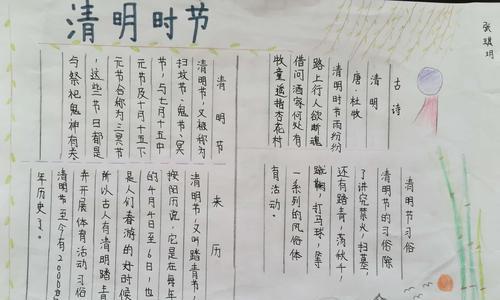 清明时节
古诗
清明
唐·杜牧
清明时节雨纷纷
路上行人欲断魂
借问酒家何处有
牧童遥指杏花村
清明节
清明节,又被称为
扫坟节、鬼节、冥
节,与七月十五中
元节及十月十五下
元节合称为三冥节
,这些节日都是
与祭祀鬼神有关
清明节习俗
清明节的习俗除
了讲究禁火,扫墓,
还有踏青,荡秋千,
蹴鞠,打马球,等
一系列的风俗体
育活动。
来历
清明节,又叫踏青节,
按阳历说,它是在每年
的4月4日至6日,也
是人们春游的好时候
所以古人有清明踏青
并开展体育活动习俗
清明节至今有2000
年历史了。